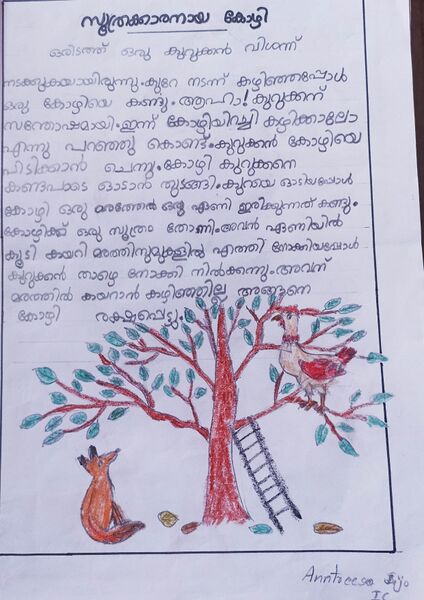 സൂത്രക്കാരനായ കോഴി
ഒരിടത്ത് ഒരു കുറുക്കൻ വിശന്ന്
നടക്കുകയായിരുന്നു.കുറേ നടന്ന് കഴിഞ്ഞപ്പോൾ
ഒരു കോഴിയെ കണ്ടു.ആഹാ! കുറുക്കന്
സന്തോഷമായി.ഇന്ന് കോഴിയിറച്ചി കഴിക്കാലോ
എന്നു പറഞ്ഞു കൊണ്ട്.കുറുക്കൻ കോഴിയെ
പിടിക്കാൻ ചെന്നു.കോഴി കുറുക്കനെ
കണ്ടപാടെ ഓടാൻ തുടങ്ങി.കുറയെ ഓടിയപ്പോൾ
കോഴി ഒരു മരത്തേൽ ഒരു ഏണി ഇരിക്കുന്നത് കണ്ടു.
കോഴിക്ക് ഒരു സൂത്രം തോണി.അവൻ ഏണിയിൽ
കൂടി കയറി മരത്തിനുമുകളിൽ എത്തി നോക്കിയപ്പോൾ
കുറുക്കൻ താഴെ നോക്കി നിൽക്കുന്നു.അവന്
മരത്തിൽ കയറാൻ കഴിഞ്ഞില്ല അങ്ങനെ
കോഴി രക്ഷപ്പെട്ടു.
Anntreesa Jijo
I C